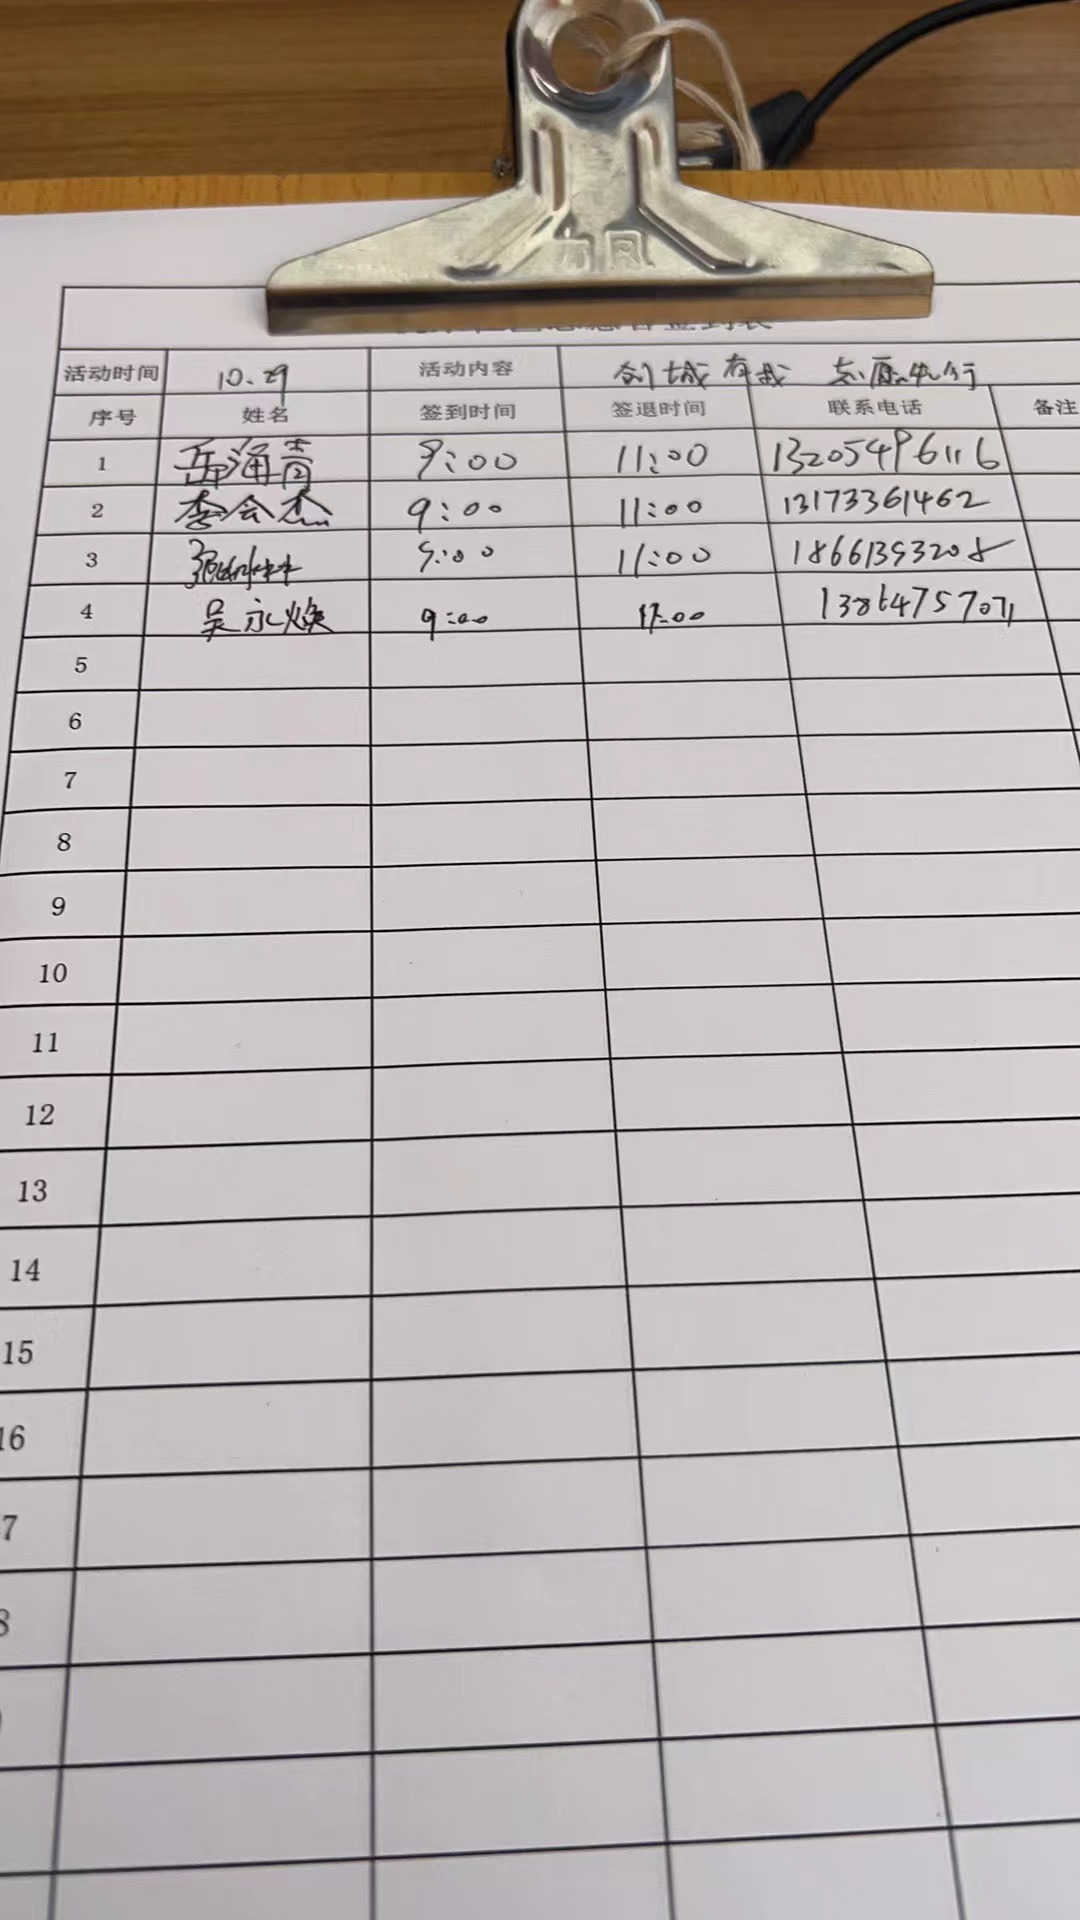 活动时间 10.29 活动内容 创城有我 志愿先行
序号 姓名 签到时间 签退时间 联系电话 备注
1 岳海青 9:00 11:00 13205496116
2 李会杰 9:00 11:00 13173361462
3 9:00 11:00 18661393208
4 吴永焕 9:00 11:00 13864757071
5
6
7
8
9
10
11
12
13
14
15
16
7
8